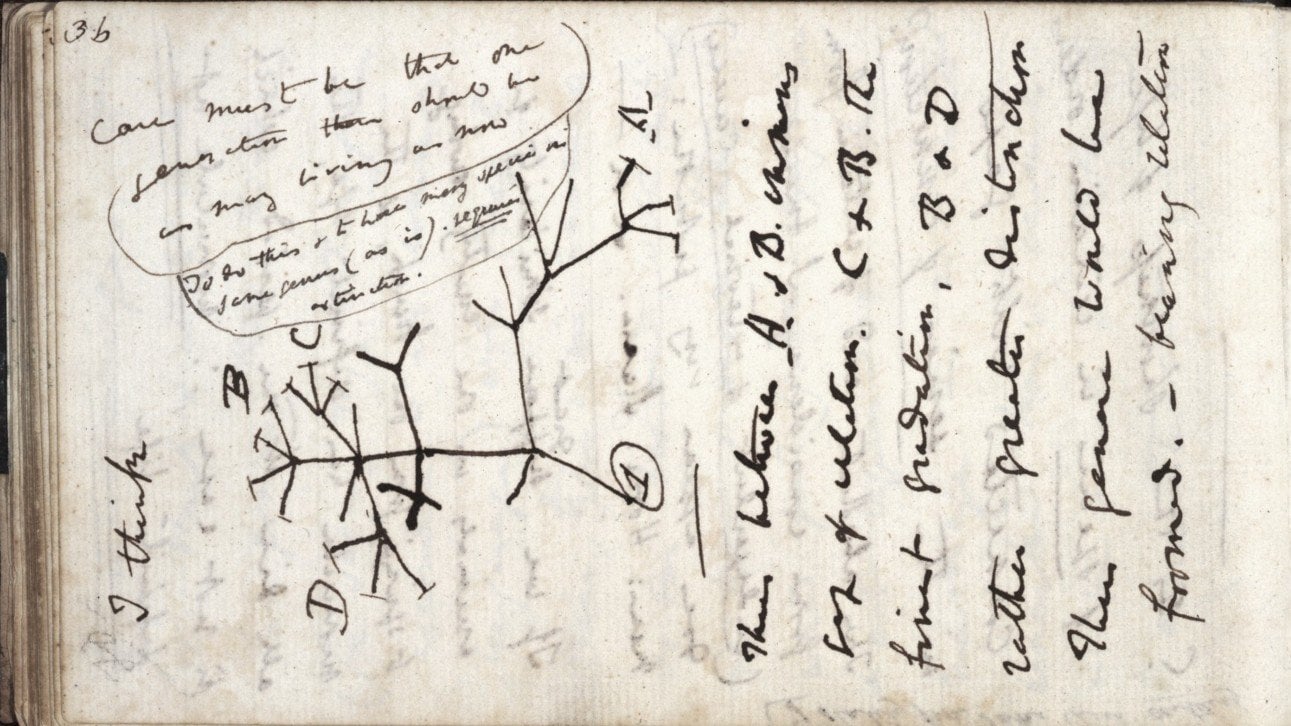 36
I think
Case must be that one
generation then should be
as many living as now
To do this & to have many species in
same genus (as is). requires
extinction.
B
C
D
A
1
Thus between A & B. immense
gap of relation. C & B. The
finest gradation, B & D
rather greater distinction
Thus genera would be
formed. — bearing relation